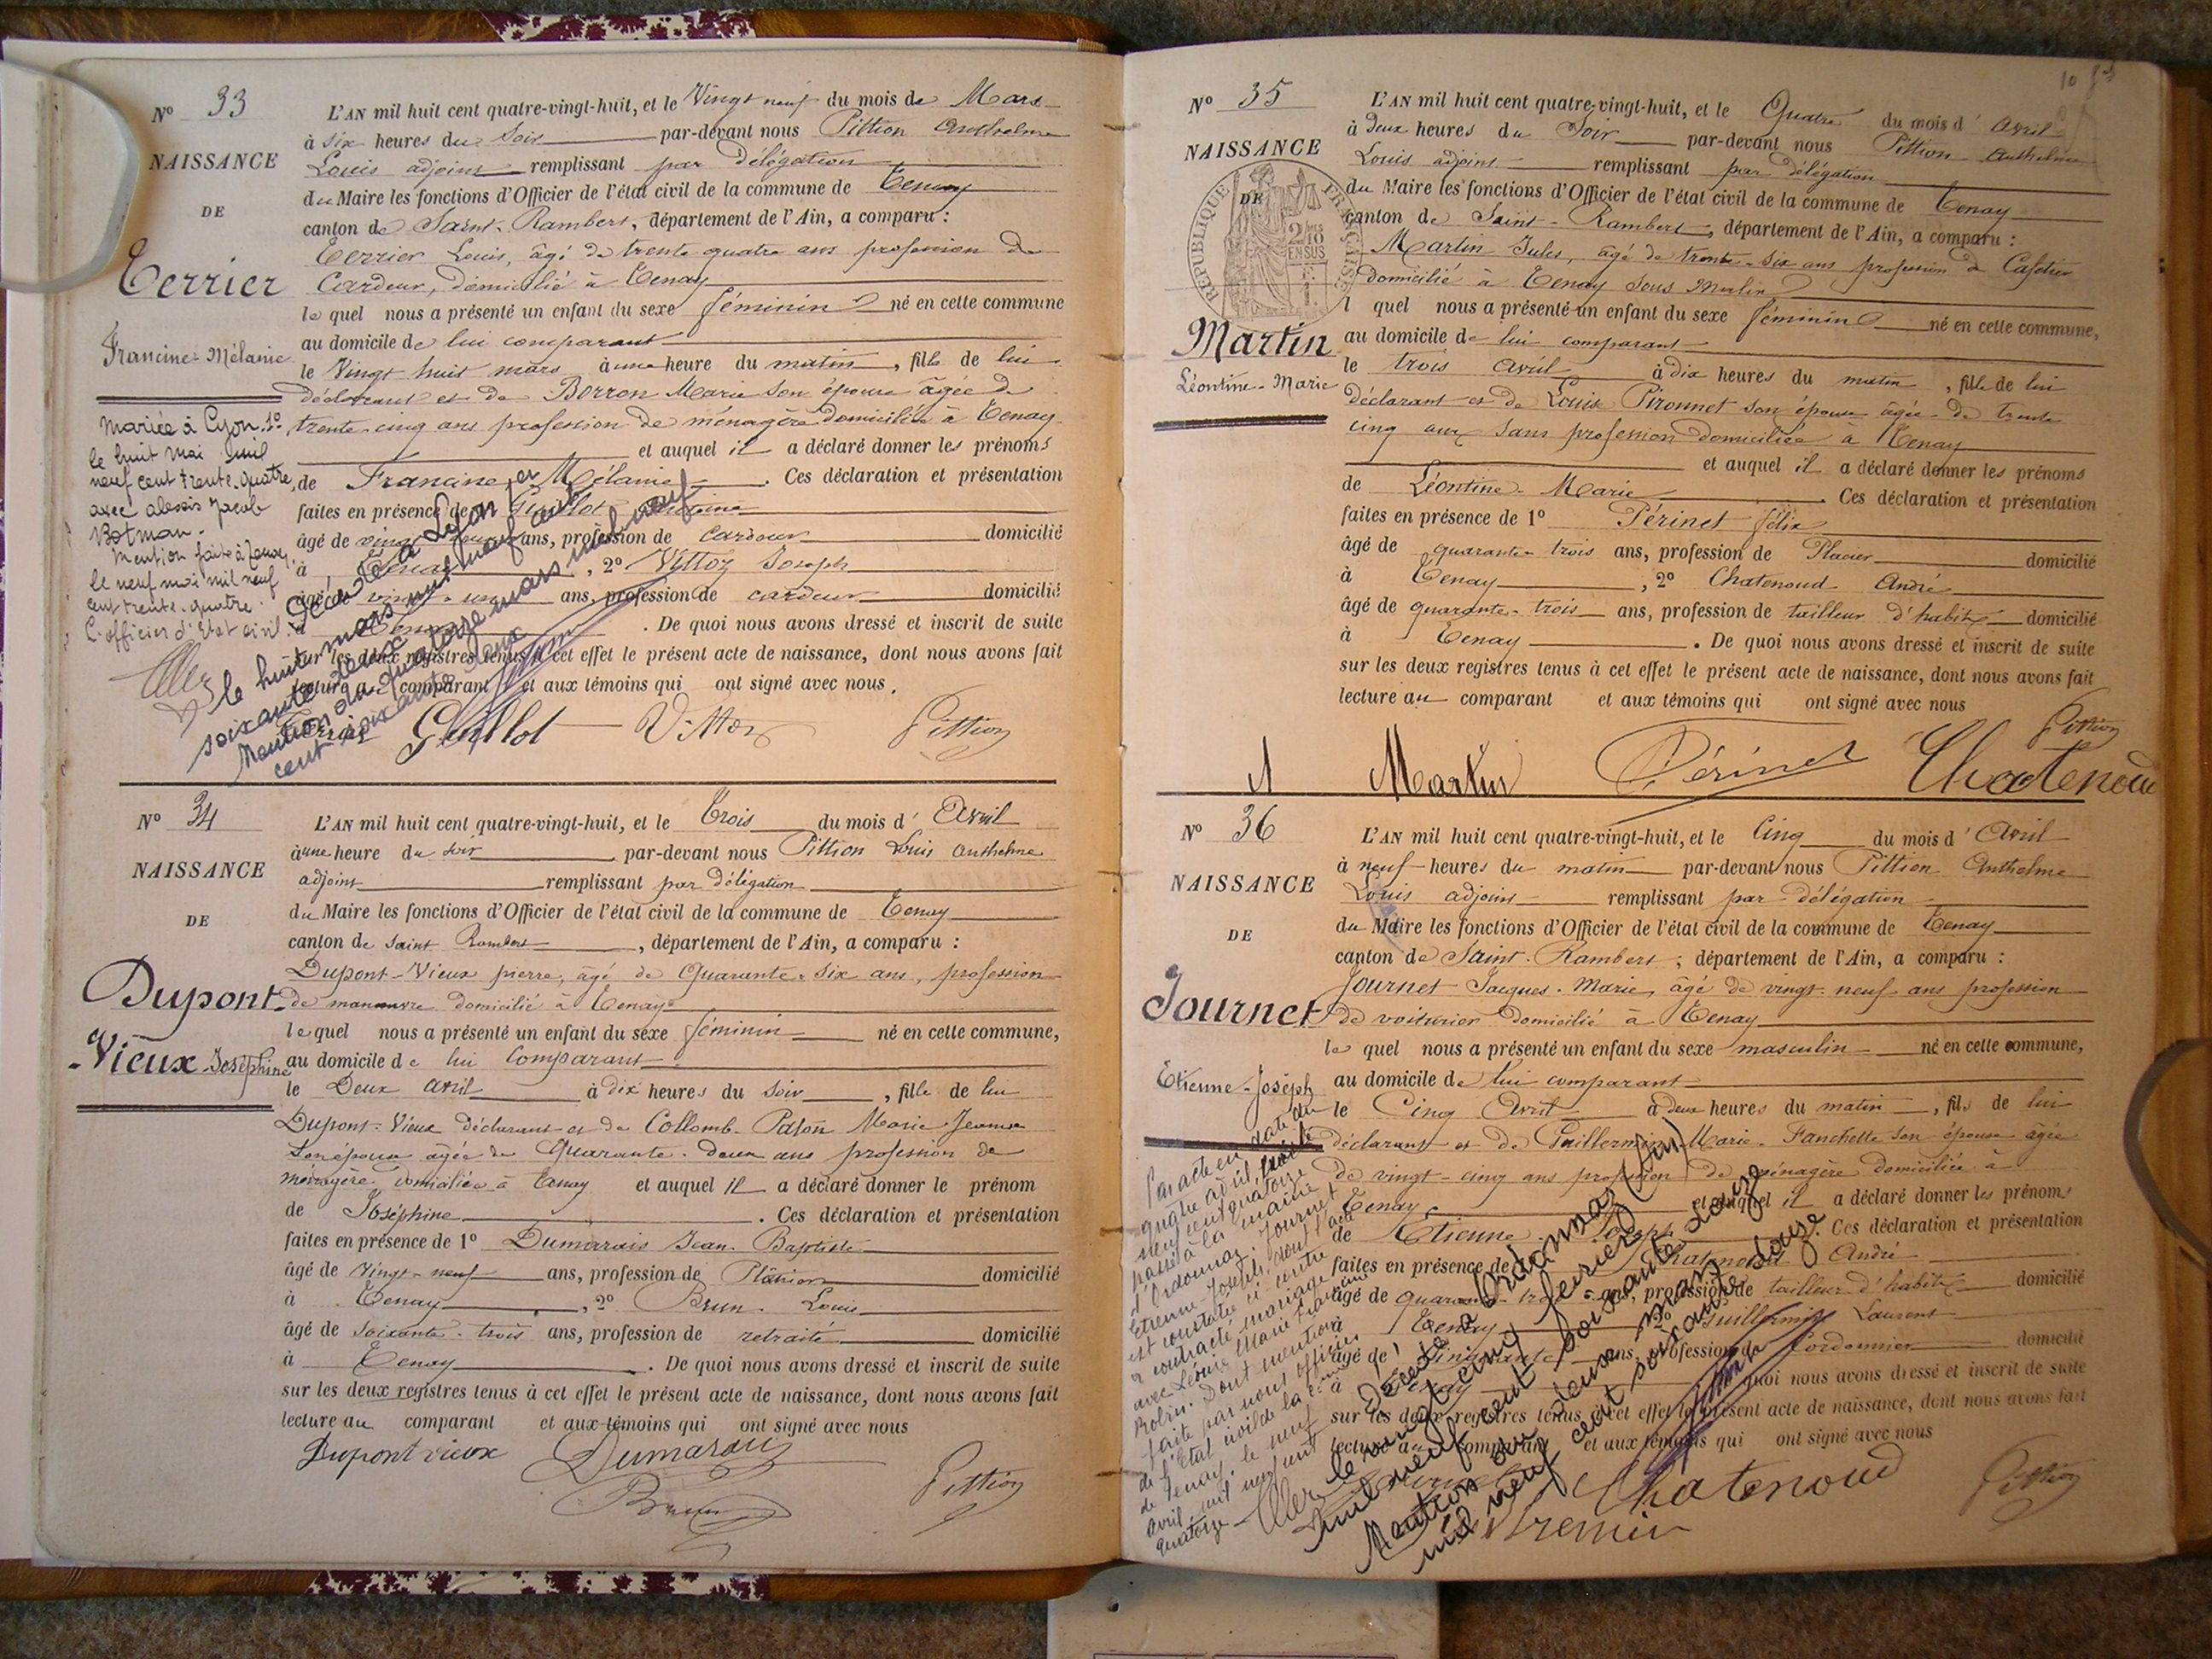 N° 33
NAISSANCE
DE
Terrier
Francine-Mélanie
Mariée à Lyon. 1°
le huit Mai mil
neuf cent trente-quatre,
avec alexis Jacob
Botman.
Mention faite à Tenay,
le neuf mai mil neuf
cent trente-quatre.
L'officier d'Etat civil.
L'AN mil huit cent quatre-vingt-huit, et le Vingt neuf du mois de Mars
à six heures du Soir par-devant nous Pittion Anthelme
Louis adjoint remplissant par délégation
du Maire les fonctions d'Officier de l'état civil de la commune de Tenay
canton de Saint-Rambert, département de l'Ain, a comparu :
Terrier Louis, âgé de trente quatre ans profession de
Cardeur, domicilié à Tenay
le quel nous a présenté un enfant du sexe féminin né en cette commune
au domicile de lui comparant
le Vingt huit mars à une heure du matin, fille de lui
déclarant et de Borron Marie son épouse âgée de
trente-cinq ans profession de ménagère domiciliée à Tenay
et auquel il a déclaré donner les prénoms
de Francine-Mélanie. Ces déclaration et présentation
faites en présence de Guillot
âgé de vingt ans, profession de cardeur domicilié
à Tenay, 2° Vittoz Joseph
âgé de vingt-un ans, profession de cardeur domicilié
à Tenay. De quoi nous avons dressé et inscrit de suite
sur les deux registres tenus à cet effet le présent acte de naissance, dont nous avons fait
lecture au comparant et aux témoins qui ont signé avec nous.
Décédée à Lyon
le huit mars mil neuf cent
soixante deux
Mention du quatorze mars mil neuf
cent soixante deux
Terrier Guillot Vittoz Pittion
N° 34
NAISSANCE
DE
Dupont-
-Vieux Joséphine
L'AN mil huit cent quatre-vingt-huit, et le Trois du mois d'Avril
à une heure du soir par-devant nous Pittion Louis Anthelme
adjoint remplissant par délégation
du Maire les fonctions d'Officier de l'état civil de la commune de Tenay
canton de Saint Rambert, département de l'Ain, a comparu :
Dupont-Vieux pierre, âgé de Quarante-six ans, profession
de manœuvre domicilié à Tenay
le quel nous a présenté un enfant du sexe féminin né en cette commune,
au domicile de lui Comparant
le Deux avril à dix heures du soir, fille de lui
Dupont-Vieux déclarant et de Collomb-Paton Marie Jeanne
son épouse âgée de Quarante-deux ans profession de
ménagère domiciliée à Tenay et auquel il a déclaré donner le prénom
de Joséphine. Ces déclaration et présentation
faites en présence de 1° Dumarais Jean-Baptiste
âgé de Vingt-neuf ans, profession de Plâtrier domicilié
à Tenay, 2° Brun Louis
âgé de soixante-trois ans, profession de retraité domicilié
à Tenay. De quoi nous avons dressé et inscrit de suite
sur les deux registres tenus à cet effet le présent acte de naissance, dont nous avons fait
lecture au comparant et aux témoins qui ont signé avec nous
Dupont vieux Dumarais
Brun Pittion
N° 35
NAISSANCE
DE
RÉPUBLIQUE FRANÇAISE
2/10 EN SUS
Martin
Léontine-Marie
L'AN mil huit cent quatre-vingt-huit, et le Quatre du mois d'avril
à Deux heures du Soir par-devant nous Pittion Anthelme
Louis adjoint remplissant par délégation
du Maire les fonctions d'Officier de l'état civil de la commune de Tenay
canton de Saint-Rambert, département de l'Ain, a comparu :
Martin Jules, âgé de trente-six ans profession de Cafetier
domicilié à Tenay sous Malix
l quel nous a présenté un enfant du sexe féminin né en cette commune,
au domicile de lui comparant
le trois avril à dix heures du matin, fille de lui
déclarant et de Louise Pironnet son épouse âgée de trente
cinq ans sans profession domiciliée à Tenay
et auquel il a déclaré donner les prénoms
de Léontine-Marie. Ces déclaration et présentation
faites en présence de 1° Périnet félix
âgé de quarante-trois ans, profession de Placier domicilié
à Tenay, 2° Chatenoud André
âgé de quarante-trois ans, profession de tailleur d'habits domicilié
à Tenay. De quoi nous avons dressé et inscrit de suite
sur les deux registres tenus à cet effet le présent acte de naissance, dont nous avons fait
lecture au comparant et aux témoins qui ont signé avec nous
Martin Périnet Chatenoud Pittion
N° 36
NAISSANCE
DE
Journet
Etienne-Joseph
Par acte en date du
quatre avril, mil
neuf cent quatorze
passé à la mairie
d'Ordonnaz, Journet
Etienne-Joseph, dont l'acte
est constaté ci-contre
a contracté mariage
avec Léonie Marie Françoise
Robin. Dont mention
faite par nous officier
de l'Etat civil de la Cne
de Tenay, le neuf
avril mil neuf cent
quatorze
L'AN mil huit cent quatre-vingt-huit, et le Cinq du mois d'Avril
à neuf heures du matin par-devant nous Pittion Anthelme
Louis adjoint remplissant par délégation
du Maire les fonctions d'Officier de l'état civil de la commune de Tenay
canton de Saint-Rambert, département de l'Ain, a comparu :
Journet Jacques-Marie, âgé de vingt-neuf ans profession
de voiturier domicilié à Tenay
le quel nous a présenté un enfant du sexe masculin né en cette commune,
au domicile de lui comparant
le Cinq Avril à deux heures du matin, fils de lui
déclarant et de Guillermin Marie-Fanchette son épouse âgée
de vingt-cinq ans profession de ménagère domiciliée à
Tenay et auquel il a déclaré donner les prénoms
de Etienne-Joseph. Ces déclaration et présentation
faites en présence de Chatenoud André
âgé de quarante-trois ans, profession de tailleur d'habits domicilié
à Tenay, 2° Guillermin Laurent
âgé de Cinquante ans, profession de Cordonnier domicilié
à Tenay. De quoi nous avons dressé et inscrit de suite
sur les deux registres tenus à cet effet le présent acte de naissance, dont nous avons fait
lecture au comparant et aux témoins qui ont signé avec nous
Décédé à Ordonnaz (Ain)
le vingt cinq février
mil neuf cent soixante douze
Mention du deux mars
mil neuf cent soixante douze
Journet Chatenoud Pittion